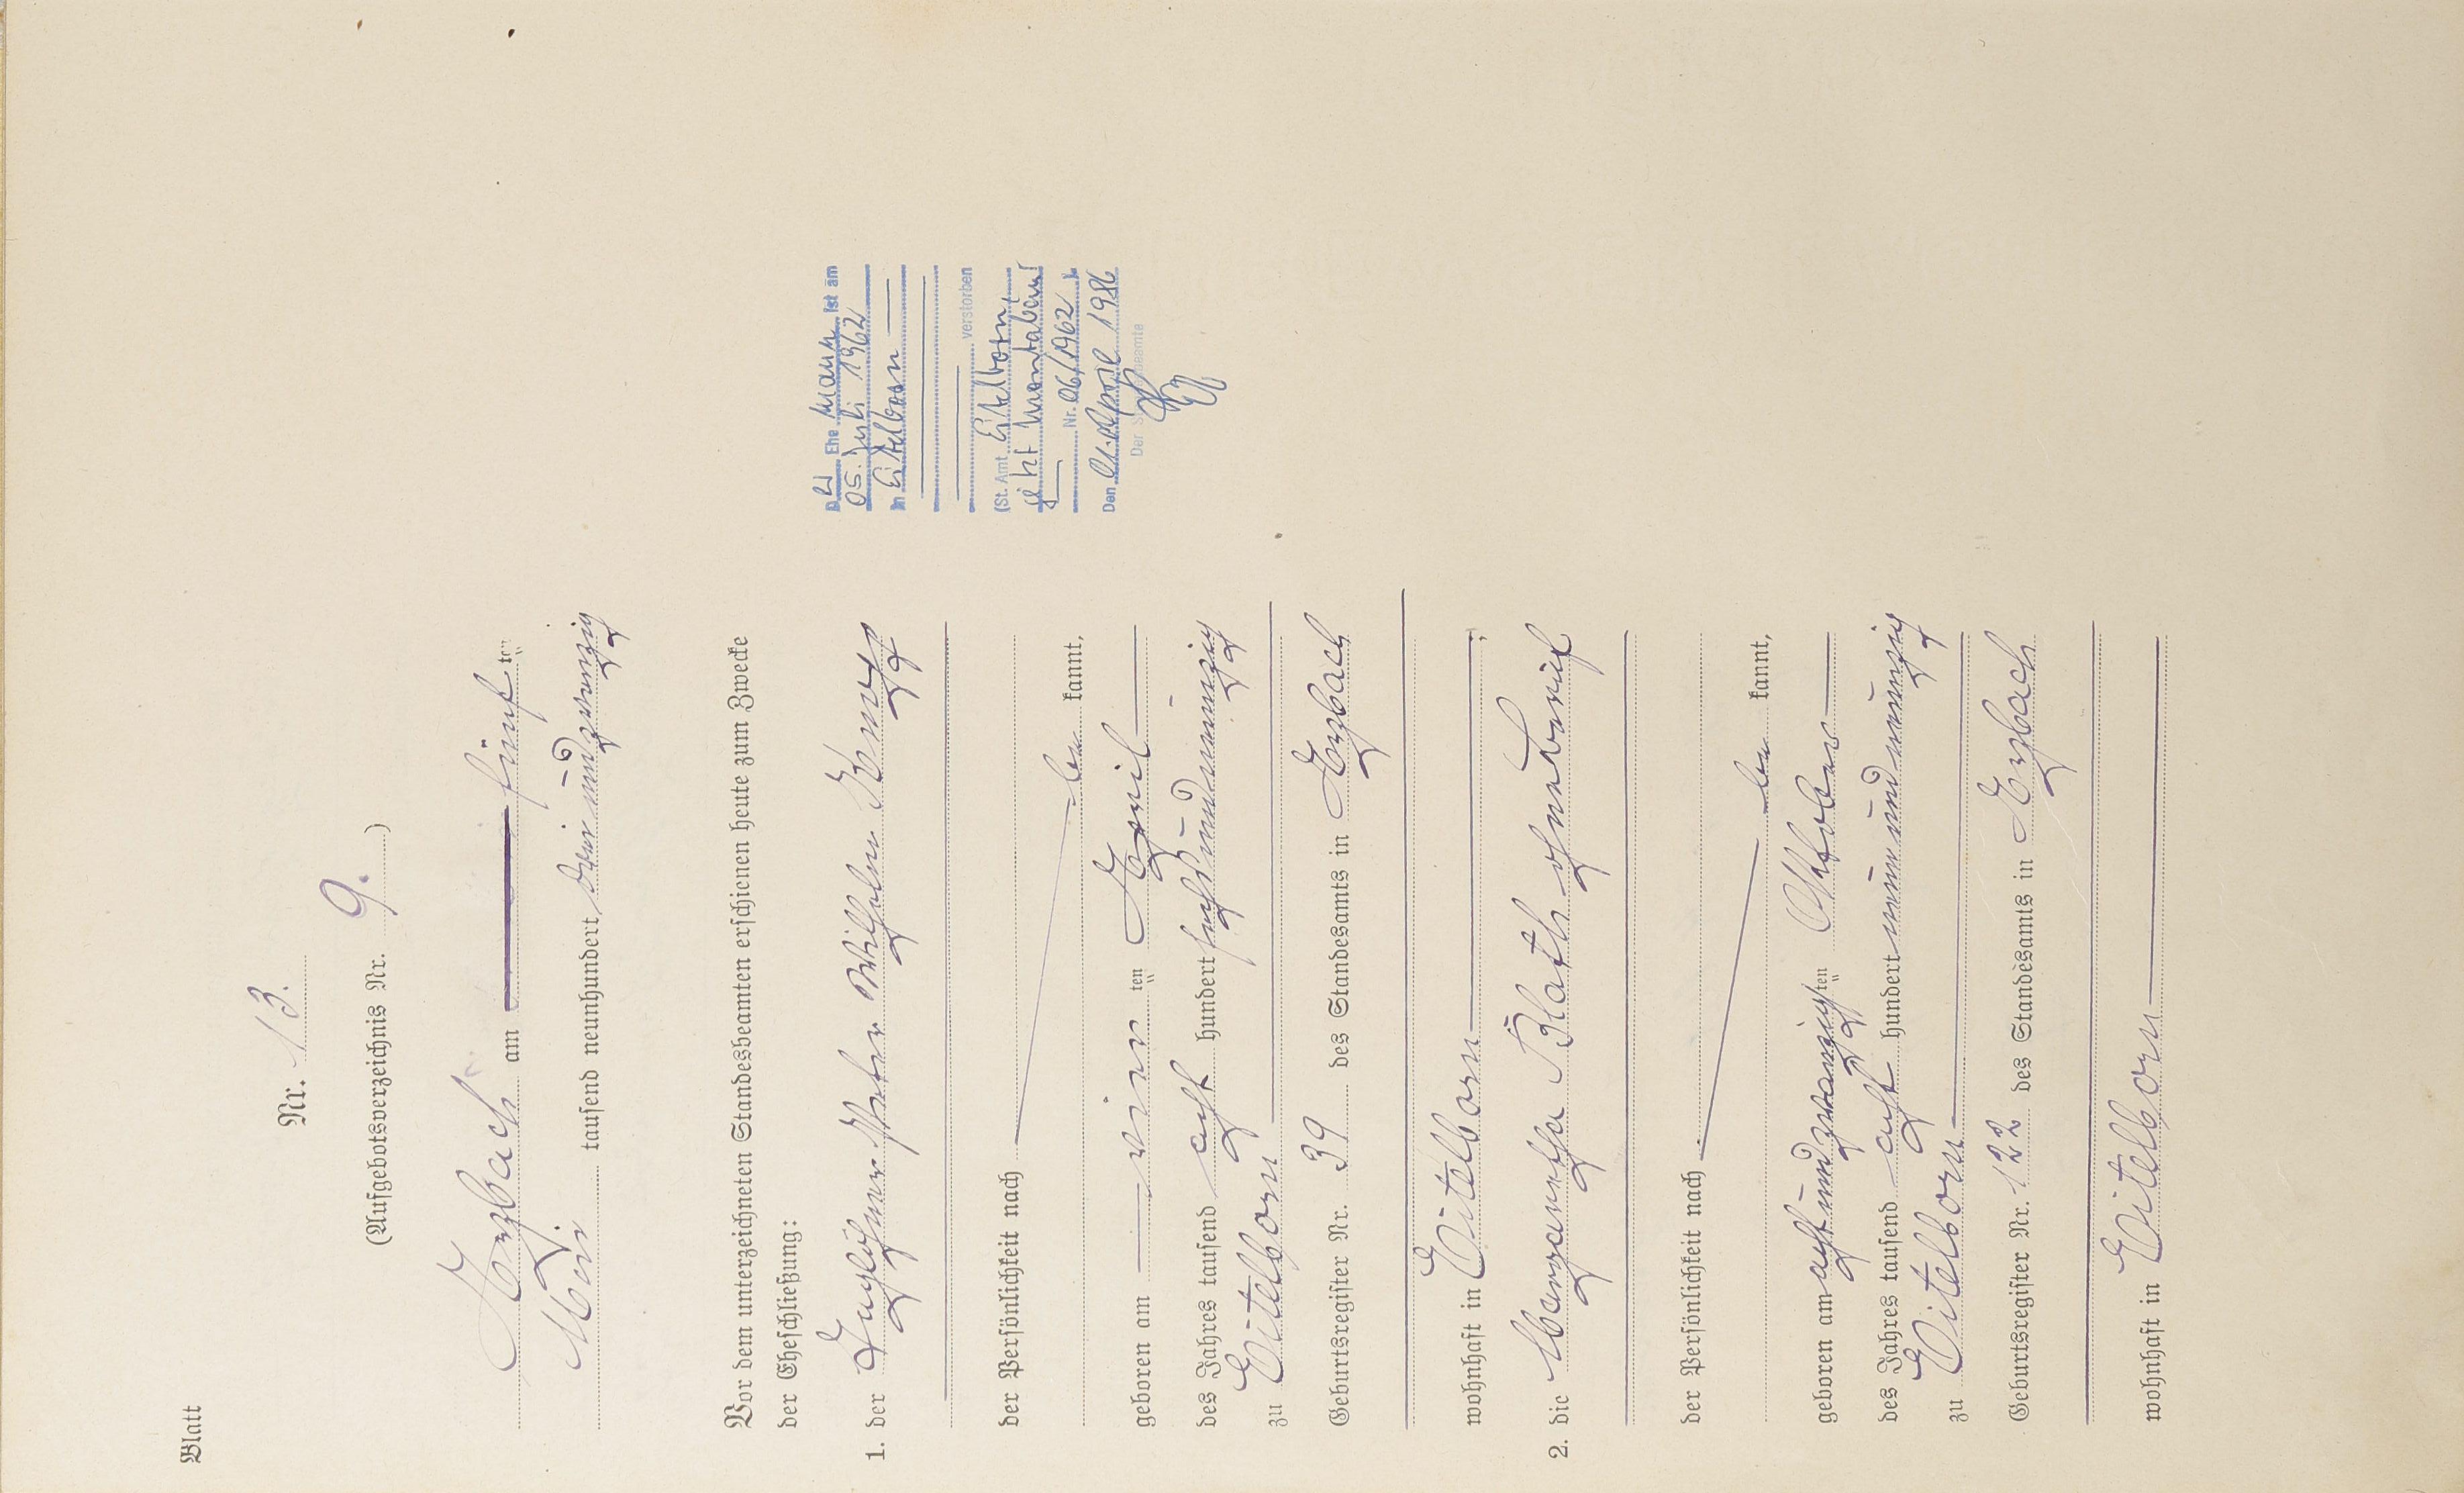 Blatt
Nr. 13.
(Aufgebotsverzeichnis Nr. 9.)
Arzbach am fünf ten
Mai tausend neunhundert drei und zwanzig
Vor dem unterzeichneten Standesbeamten erschienen heute zum Zwecke
der Eheschließung:
1. der Taglöhner Peter Wilhelm Knopp
der Persönlichkeit nach
be kannt,
geboren am vier ten April
des Jahres tausend acht hundert sechs und neunzig
zu Eitelborn
Geburtsregister Nr. 39 des Standesamts in Arzbach
wohnhaft in Eitelborn ;
2. die Margaretha Blath ohne Beruf
der Persönlichkeit nach
be kannt,
geboren am acht und zwanzigs ten Oktober
des Jahres tausend acht hundert neun und neunzig
zu Eitelborn
Geburtsregister Nr. 122 des Standesamts in Arzbach
wohnhaft in Eitelborn
Der Ehemann ist am
05. Juli 1962
in Eitelborn
verstorben
(St. Amt Eitelborn,
jetzt Montabaur
Nr. 06/1962 ).
Den 01. April 1986
Der Standesbeamte